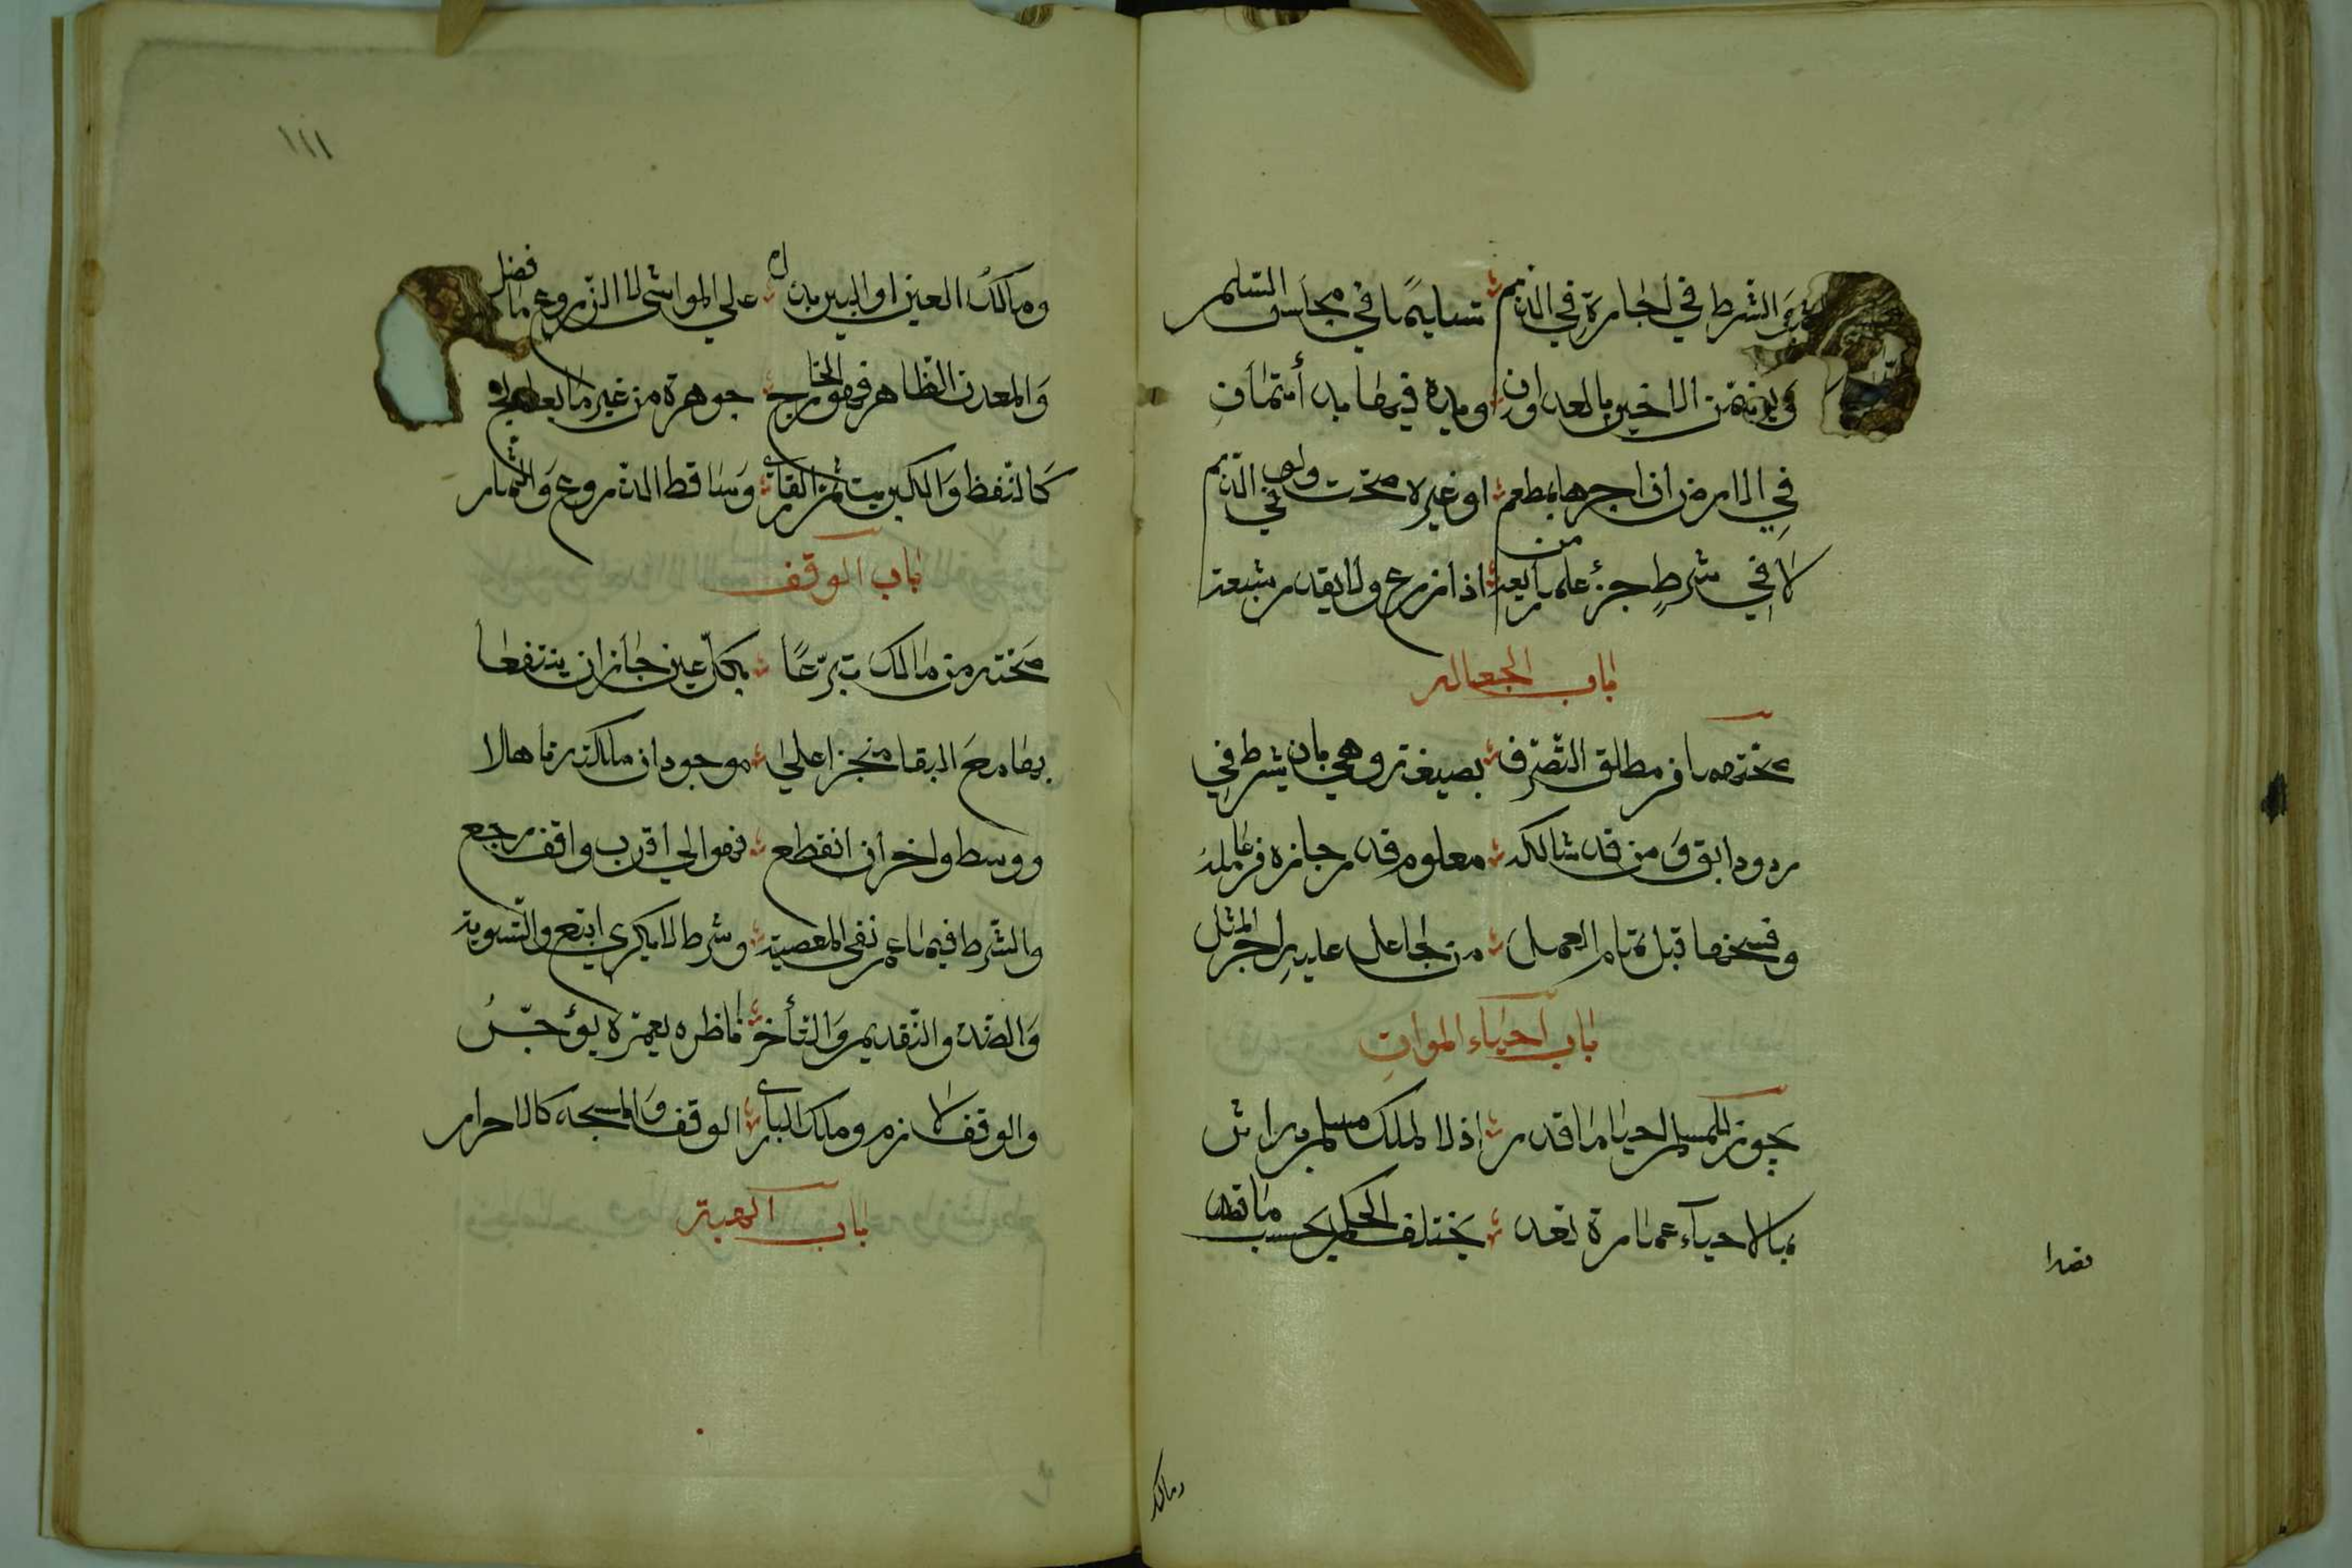 والشرط في اجارة في الذمم تسليمها في مجلس السلم
الاخير بالعداوان او يده فيها يد أئتمان
في الارض ان اجرها بمطعم او غيره صحت ولو في الذمم
لا في شرط جزء علمت من ريعه اذا زرع ولا بقدر شبعه
باب الجعاله
صحتها من مطلق التصرف بصيغة وهي بان يشرط في
ردود ابق ومن قد شاكله معلوم قدر حازه من عامله
وفسخها قبل تمام العمل من جاعل عليه اجر المثل
باب احياء الموات
يجوز للمسلم احيا ما قدر اذ لا لملك مسلم به اثر
بالاحياء عمارة تعد يختلف الحكم بحسب ما قصد
قصدا
ومالك
١١١
ومالك العين او البير بذل على المواشي لا الزروع ما فضل
والمعدن الظاهر فهو الخارج جوهره من غير ما يعالج
كالنفط والكبريت ثم القار وساقط الزروع والثمار
باب الوقف
صحته من مالك تبرعا بكل عين جاز ان ينتفعا
بها مع البقا منجزا على موجود ان ملكته تاهلا
ووسط واخر ان انقطع فهو الى اقرب واقف رجع
والشرط فيما عم نفي المعصية وشرط لا يكري اتبع والتسوية
والضد والتقديم والتأخر ناظره يعمره يؤجر
والوقف لازم وملك الباري الوقف والمسجد كالاحرار
باب الهبة